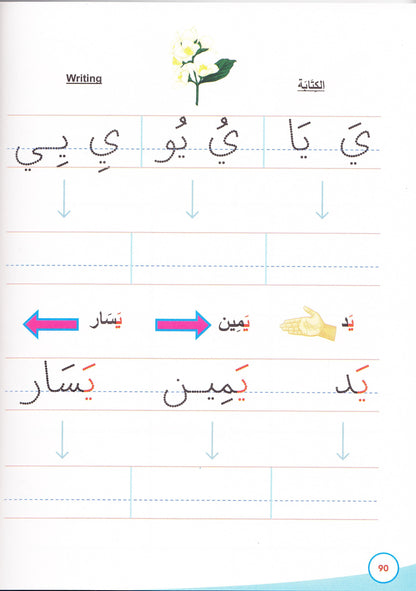 الكِتَابَة Writing
يَ يَا يُ يُو يِ يِي
يَد يَمِين يَسَار
يَد يَمِين يَسَار
90